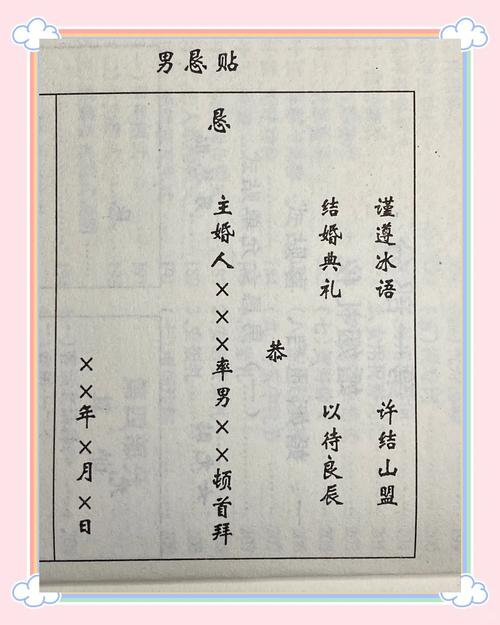 男恳贴
谨遵冰语 许结山盟
结婚典礼 以待良辰
恭
恳 主婚人×××率男××顿首拜
××年×月×日